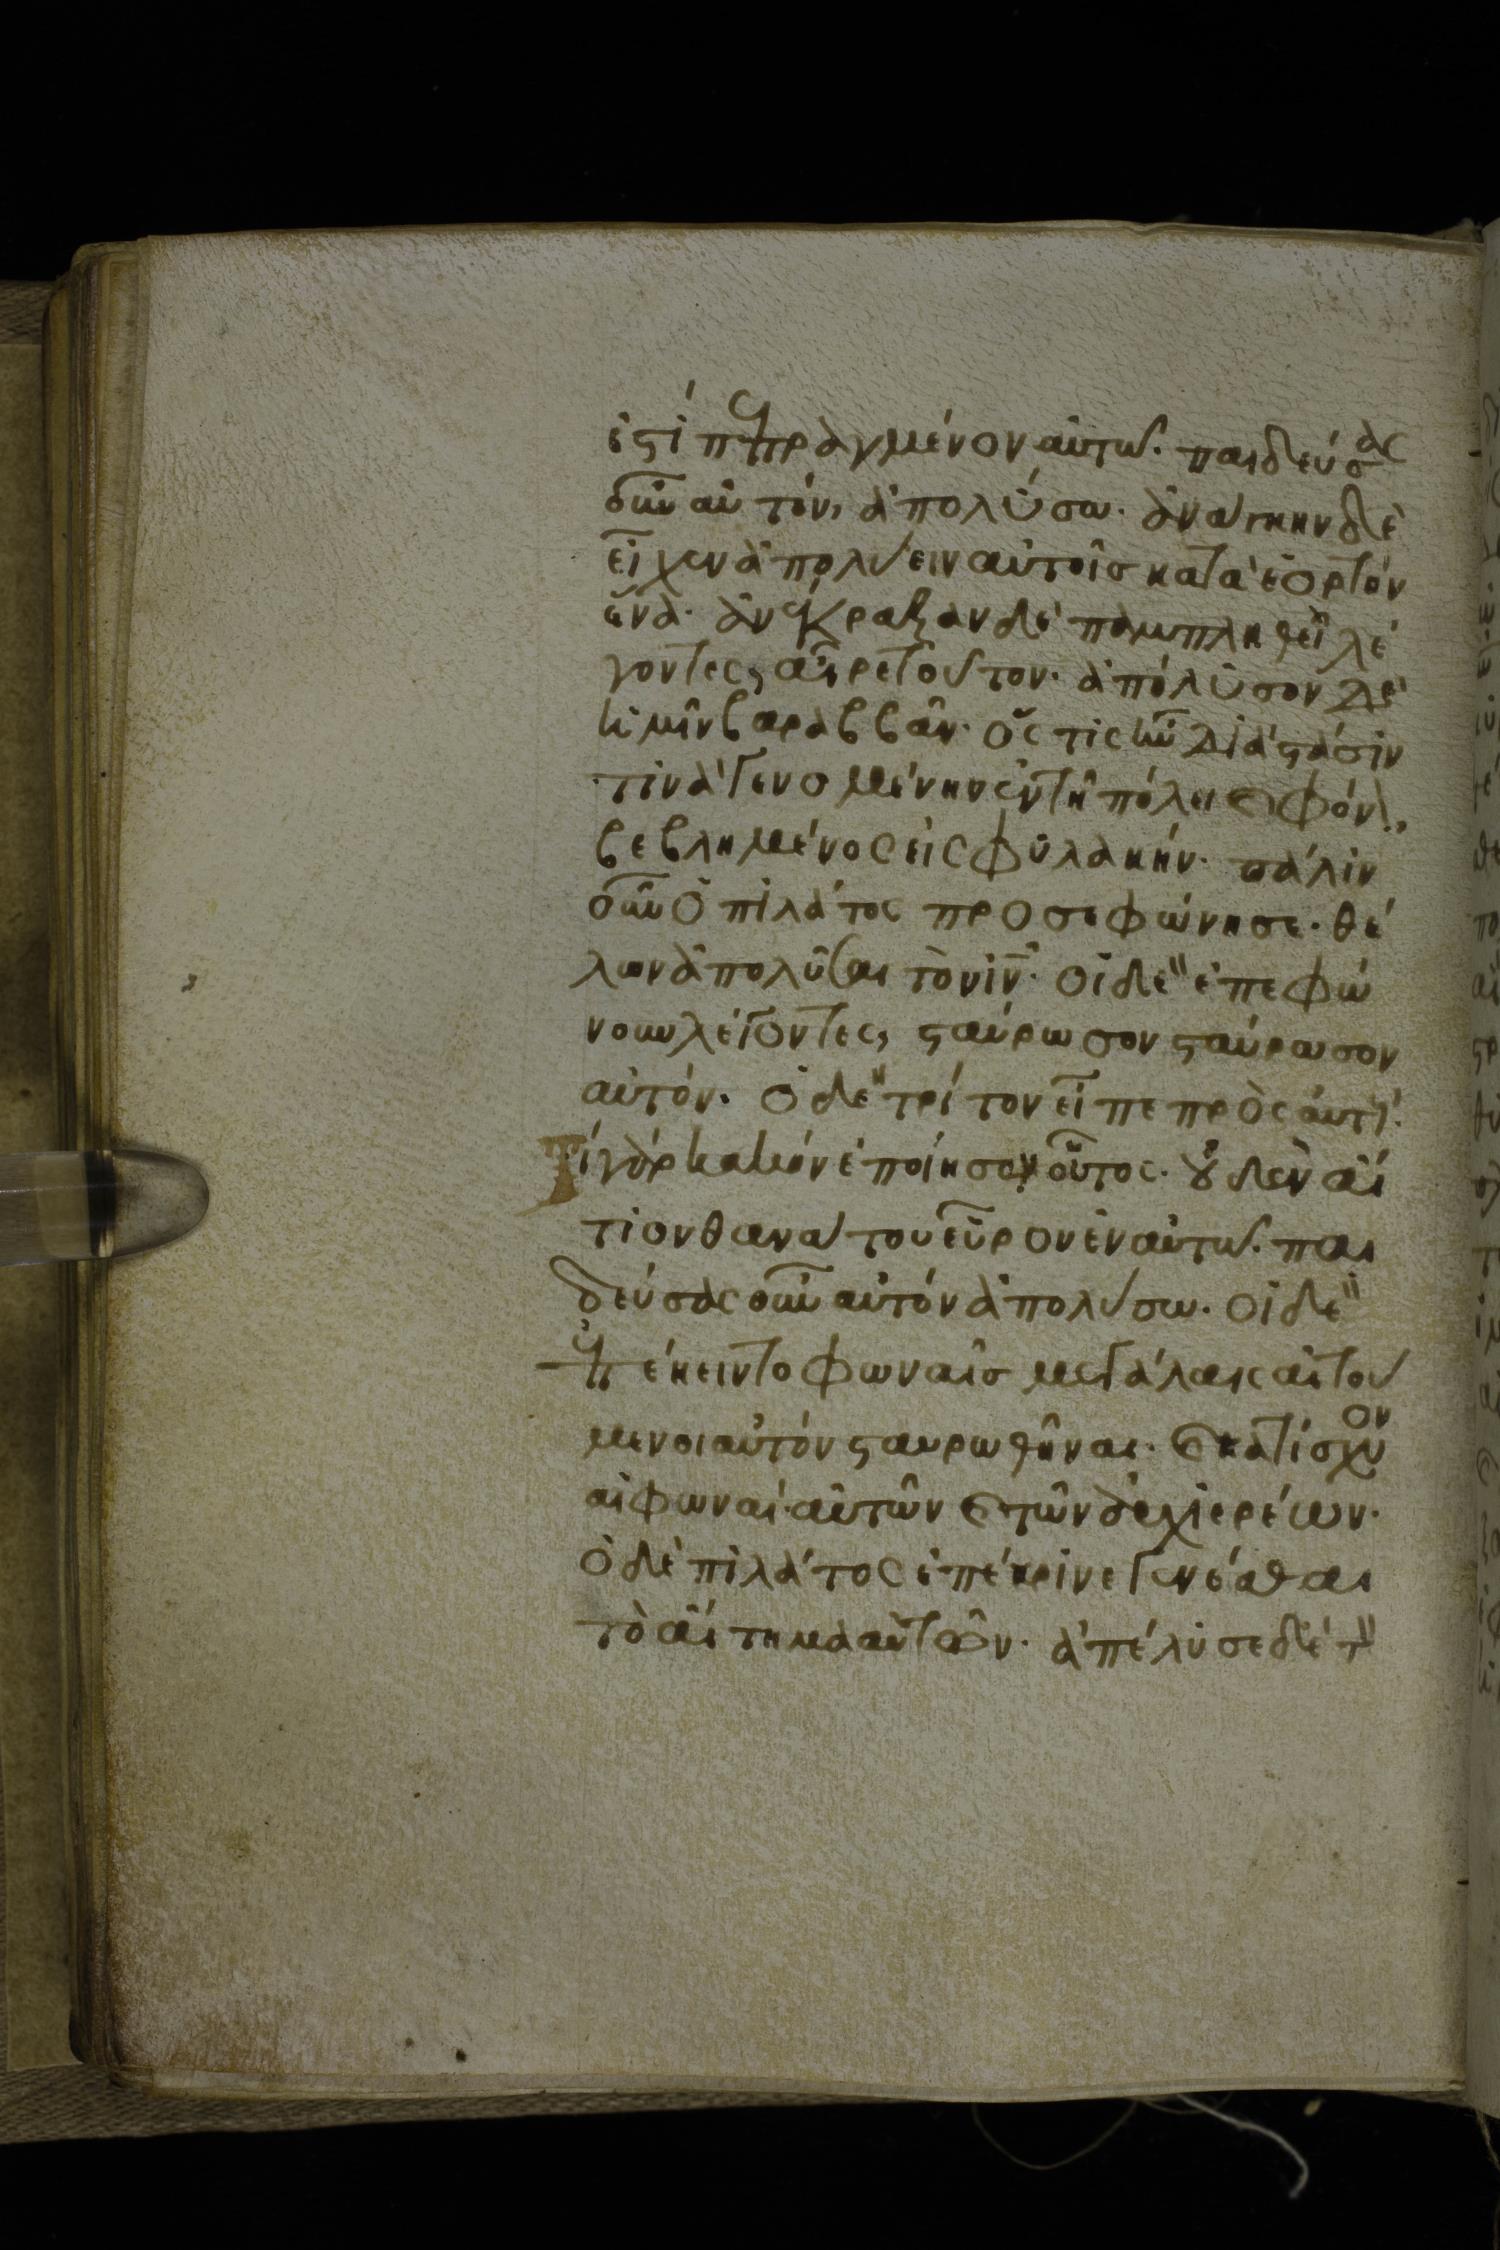 ἐστὶ πεπραγμένον αὐτῶ. παιδεύσας
οὖν αὐτὸν, ἀπολύσω. ἀνάγκην δὲ
εἶχεν ἀπολύειν αὐτοῖσ κατὰ ἑορτὴν
ἕνα. ἀνέκραξαν δὲ παμπληθεὶ λέ
γοντες, αἶρε τοῦτον. ἀπόλυσον δὲ
ἡμῖν βαραββᾶν. ὅς τις ἦν διὰ στάσιν
τινὰ γενομένην ἐν τῆ πόλει καὶ φόνον,
βεβλημένος εἰς φυλακήν. πάλιν
οὖν ὁ πιλάτος προσεφώνησε. θέ
λων ἀπολῦσαι τὸν ιν̄. οἱ δὲ ἐπεφώ
νουν λέγοντες, σταύρωσον σταύρωσον
αὐτόν. ὁ δὲ τρίτον εἶπε πρὸς αὐτούς.
Τί γὰρ κακὸν ἐποίησεν οὗτος. οὐδὲν αἴ
τιον θανάτου εὗρον ἐν αὐτῶ. παι
δεύσας οὖν αὐτὸν ἀπολύσω. οἱ δὲ
ἐπέκειντο φωναῖσ μεγάλαις αἰτού
μενοι αὐτὸν σταυρωθῆναι. καὶ κατίσχυον
αἱ φωναὶ αὐτῶν καὶ τῶν ἀρχιερέων.
ὁ δὲ πιλάτος ἐπέκρινε γενέσθαι
τὸ αἴτημα αὐτῶν. ἀπέλυσε δὲ τὸν